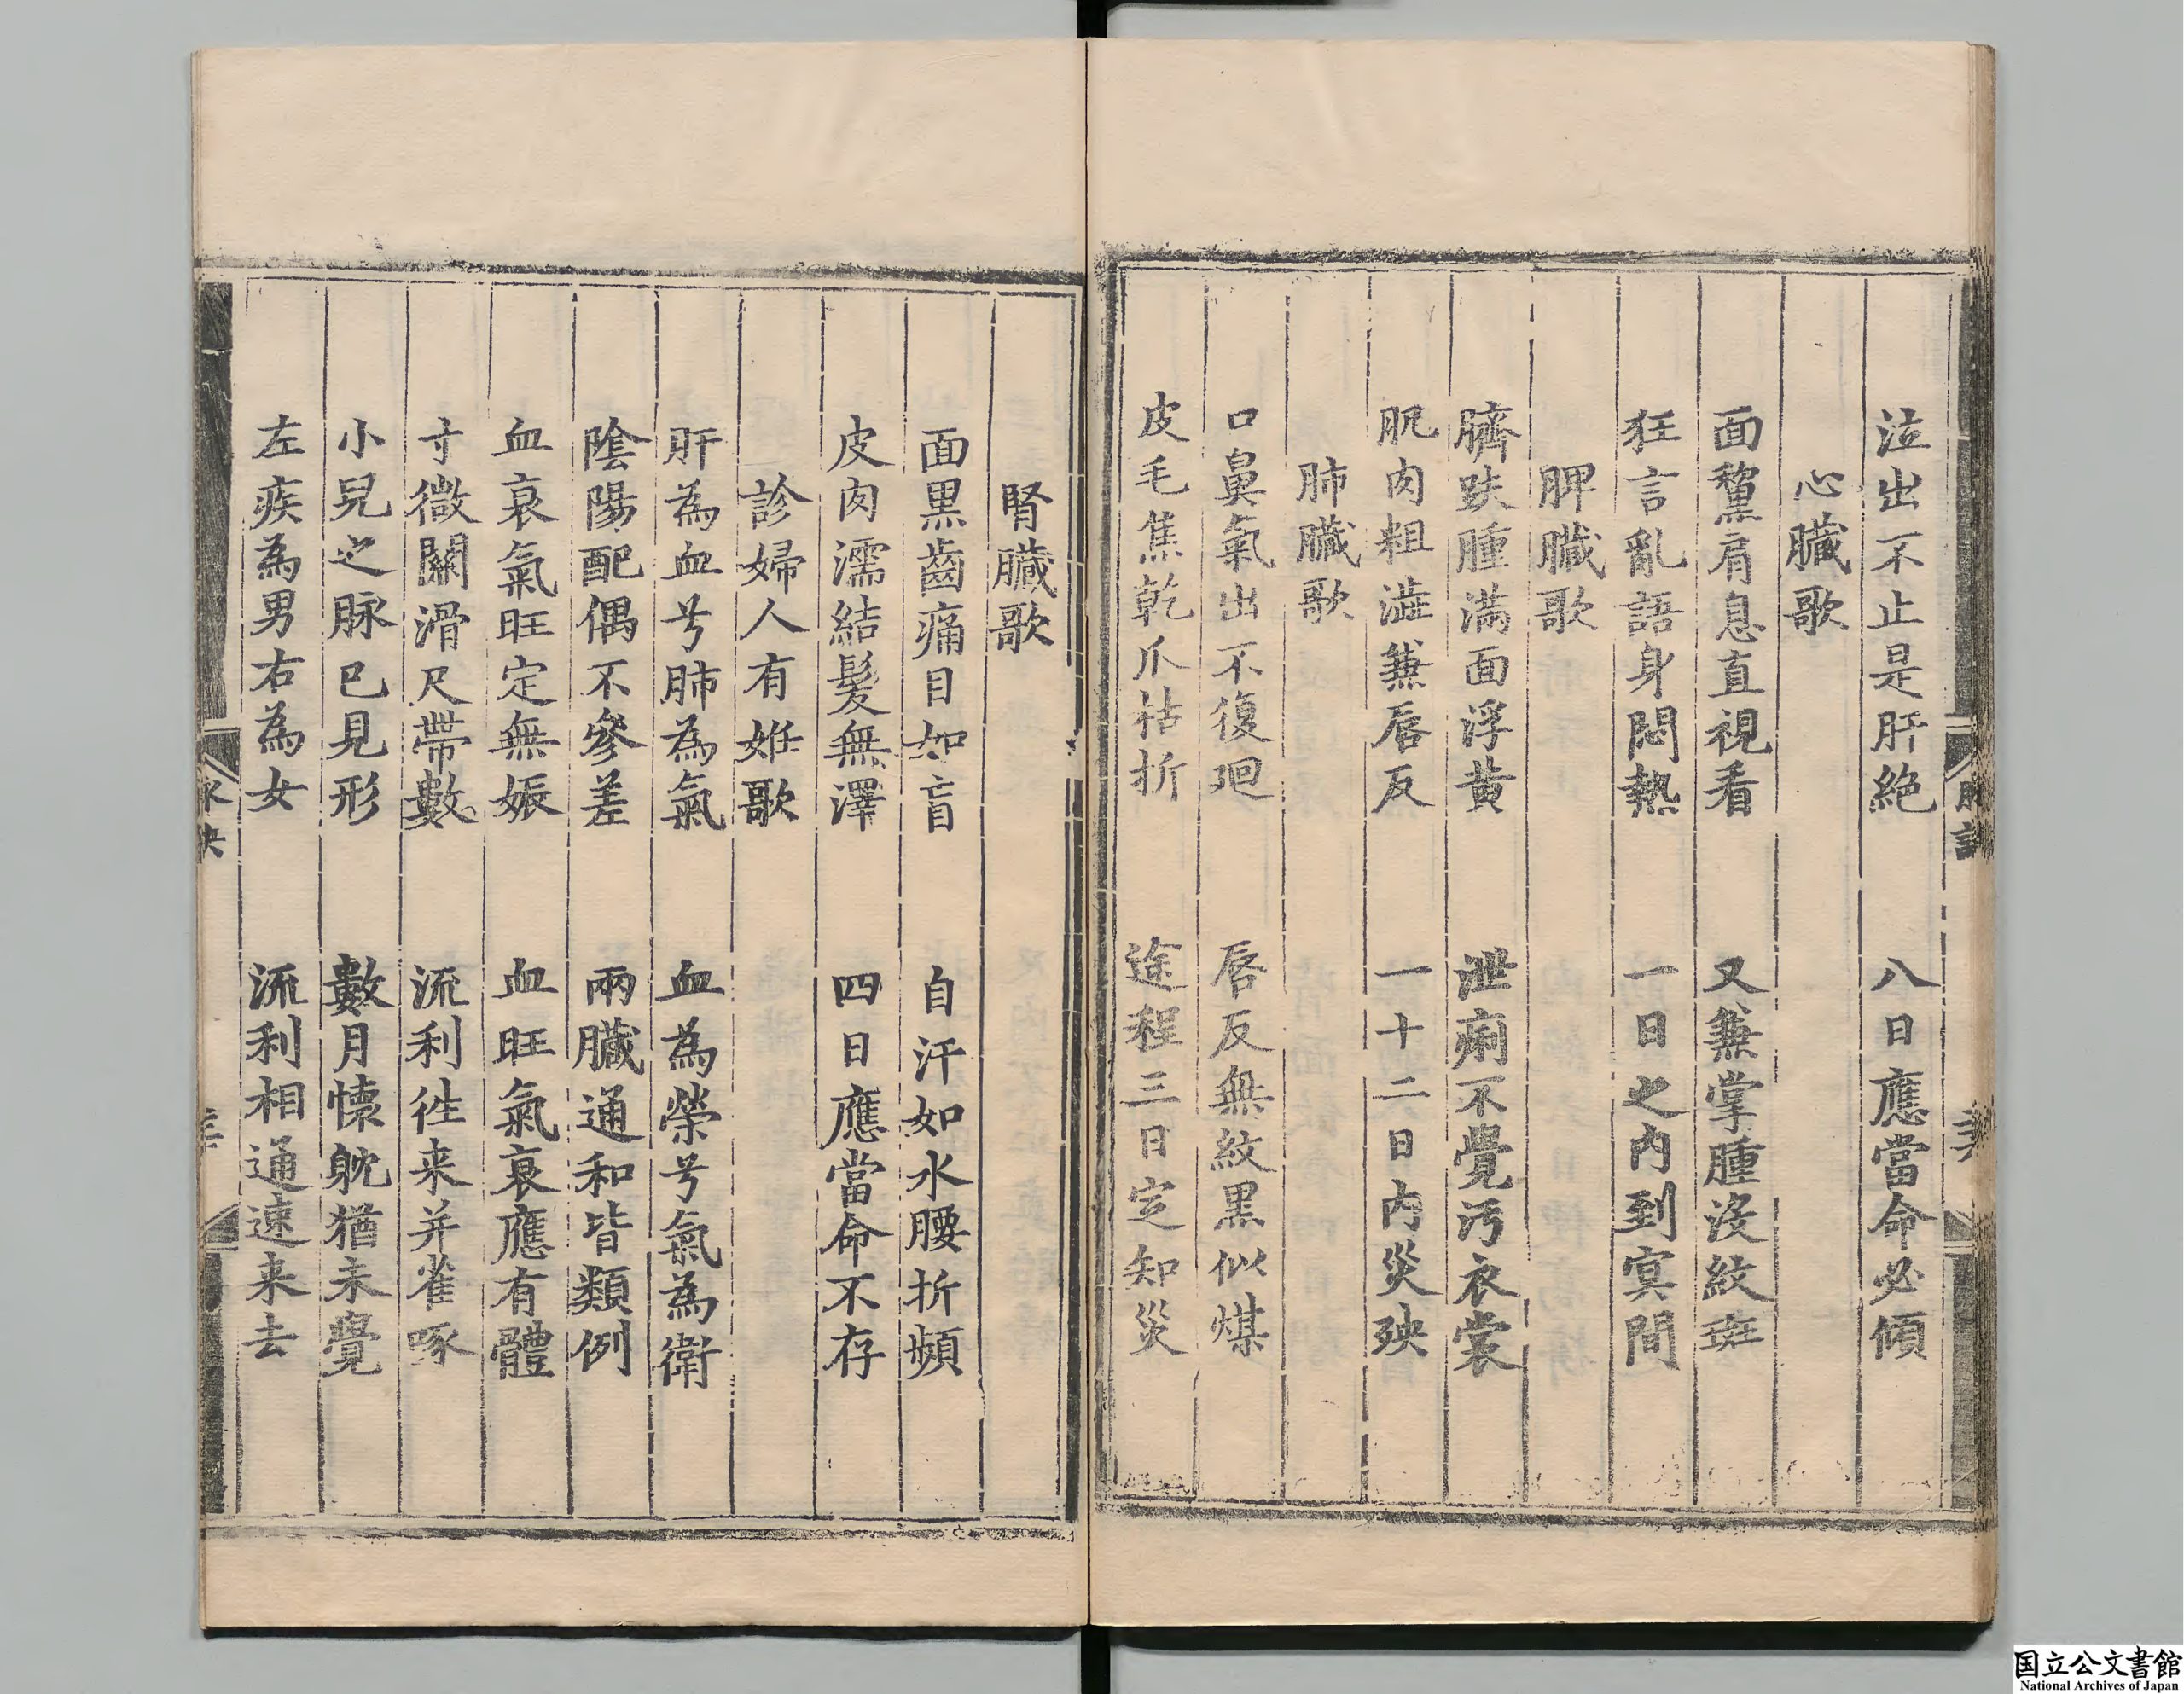 泣出不止是肝絶　八日應當命必傾
心臓歌
面黧肩息直視看　又兼掌腫沒紋斑
狂言亂語身悶熱　一日之内到冥間
脾臓歌
臍趺腫滿面浮黄　泄痢不覺污衣裳
肌肉粗澁兼唇反　一十二日内災殃
肺臓歌
口鼻氣出不復廻　唇反無紋黒似煤
皮毛焦乾爪枯折　途程三日定知災
腎臓歌
面黒齒痛目如盲　自汗如水腰折頻
皮肉濡結髮無澤　四日應當命不存
診婦人有姙歌
肝為血兮肺為氣　血為榮兮氣為衛
陰陽配偶不參差　兩臓通和皆類例
血衰氣旺定無娠　血旺氣衰應有體
寸微關滑尺帶數　流利徃来并雀啄
小兒之脉已見形　數月懐躭猶未覺
左疾為男右為女　流利相通速来去
国立公文書館
National Archives of Japan